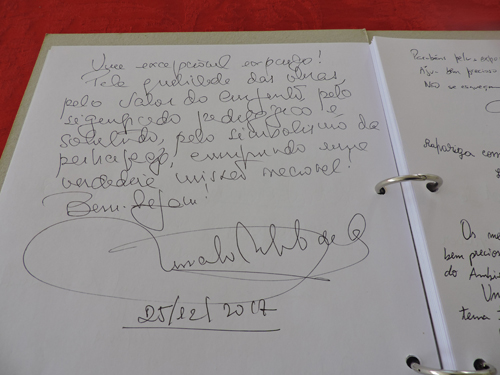 Uma excepcional exposição!
Pela qualidade das obras,
pelo valor do conjunto, pelo
significado pedagógico e
solidário, pelo simbolismo da
cumprindo uma
verdadeira missão nacional!
Bem-hajam!
25/12/2017
Parabéns pela expo
NO se
Reparação com
Os me
bem precios
do Ambi
Um
tema